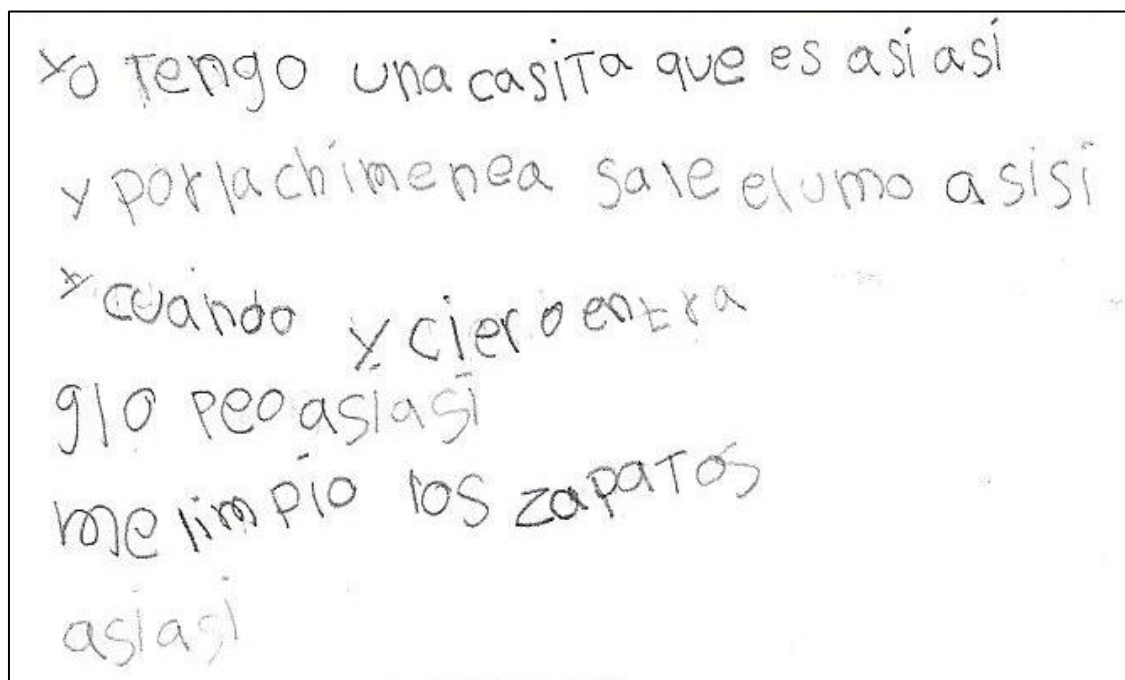 Yo Tengo una casiTa que es asi asi
y por la chimenea sale el umo a sisi
y cuando y ciero entra
glo peo asi asi
me limpio los zapaTos
asi asi